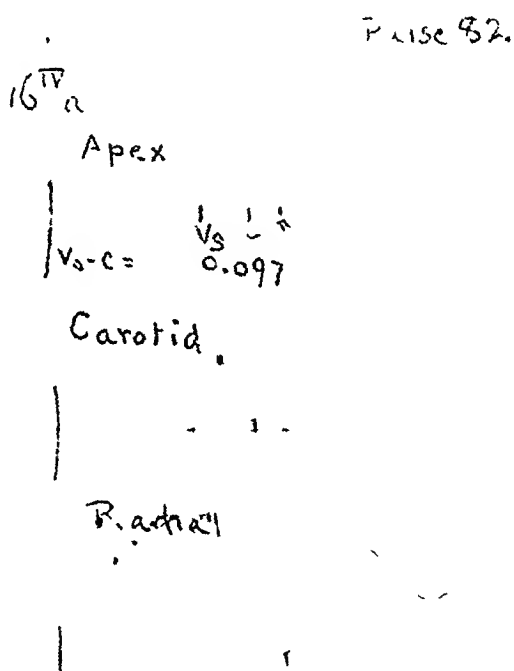 Pulse 82.
16 IV a
Apex
Vs
Vs-c = 0.097
Carotid.
Radial